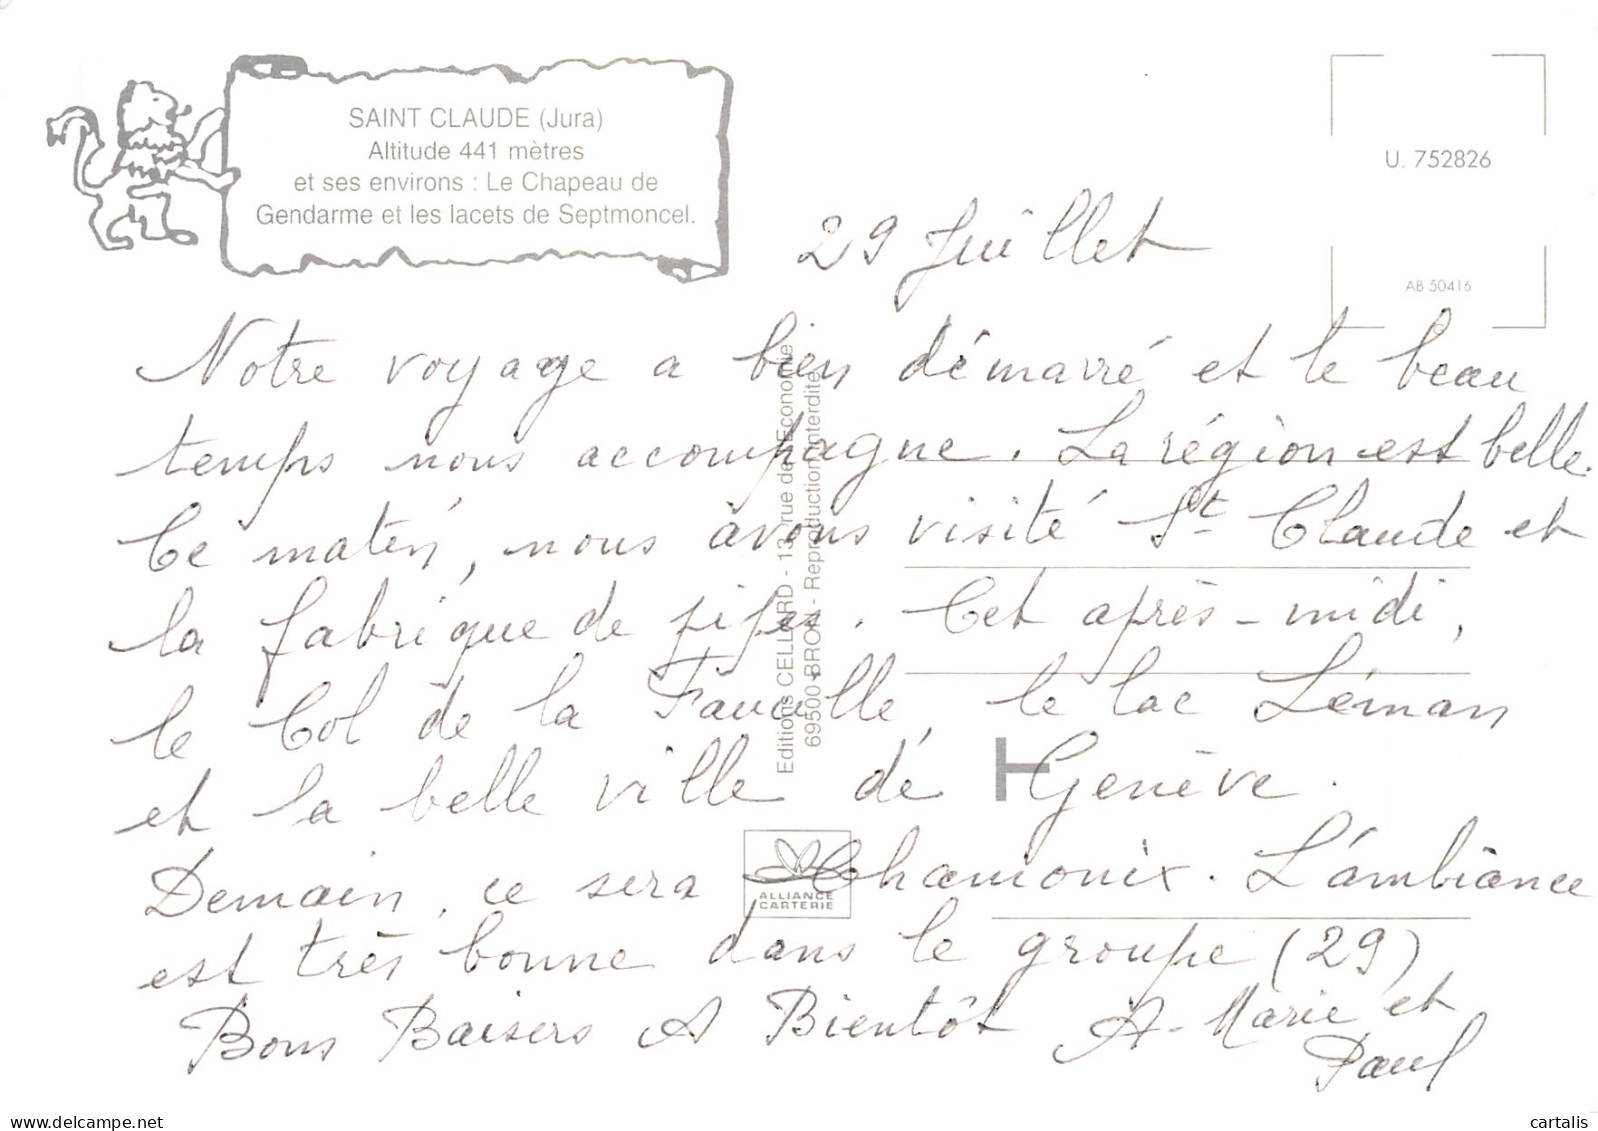 SAINT CLAUDE (Jura)
Altitude 441 mètres
et ses environs : Le Chapeau de
Gendarme et les lacets de Septmoncel.
U. 752826
AB 50416
29 Juillet
Notre voyage a bien démarré et le beau
temps nous accompagne. La région est belle.
Ce matin, nous avons visité St Claude et
la fabrique de pipes. Cet après-midi,
le Col de la Faucille, le lac Léman
et la belle ville de Genève.
Demain, ce sera Chamonix. L'ambiance
est très bonne dans le groupe (29)
Bons Baisers A Bientôt A-Marie et
Paul
Editions CELLARD - 13, rue de l'Economie
69500 BRON - Reproduction interdite
ALLIANCE
CARTERIE
www.delcampe.net
cartalis